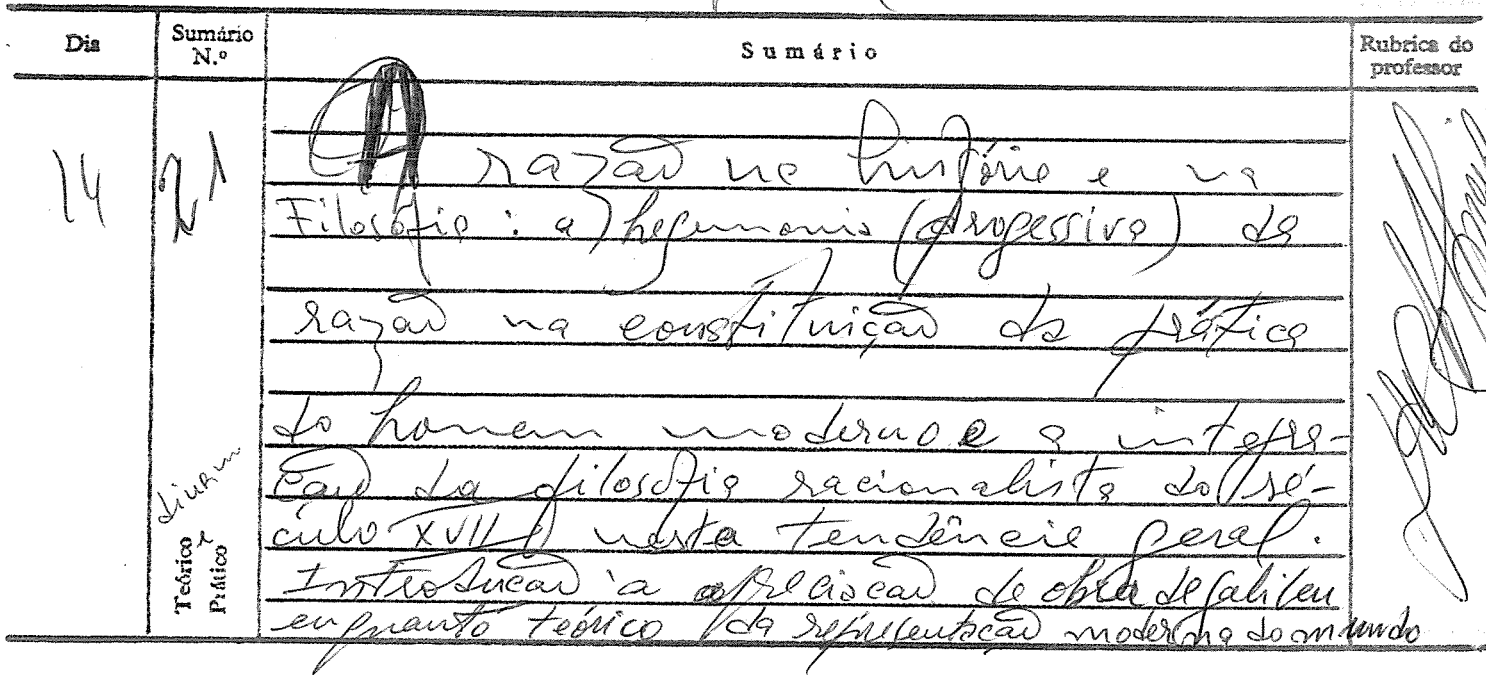 Dia Sumário N.º Sumário Rubrica do professor
14 21 A razão na história e na
Filosofia: a hegemonia (progessiva) da
razão na constituição da prática
do homem moderno e a integra-
ção da filosofia racionalista do (sé-
culo XVII) nesta tendência geral.
Introdução à apreciação de obra de Galileu
enquanto teórico da representação moderna do mundo
Teórico e Prático